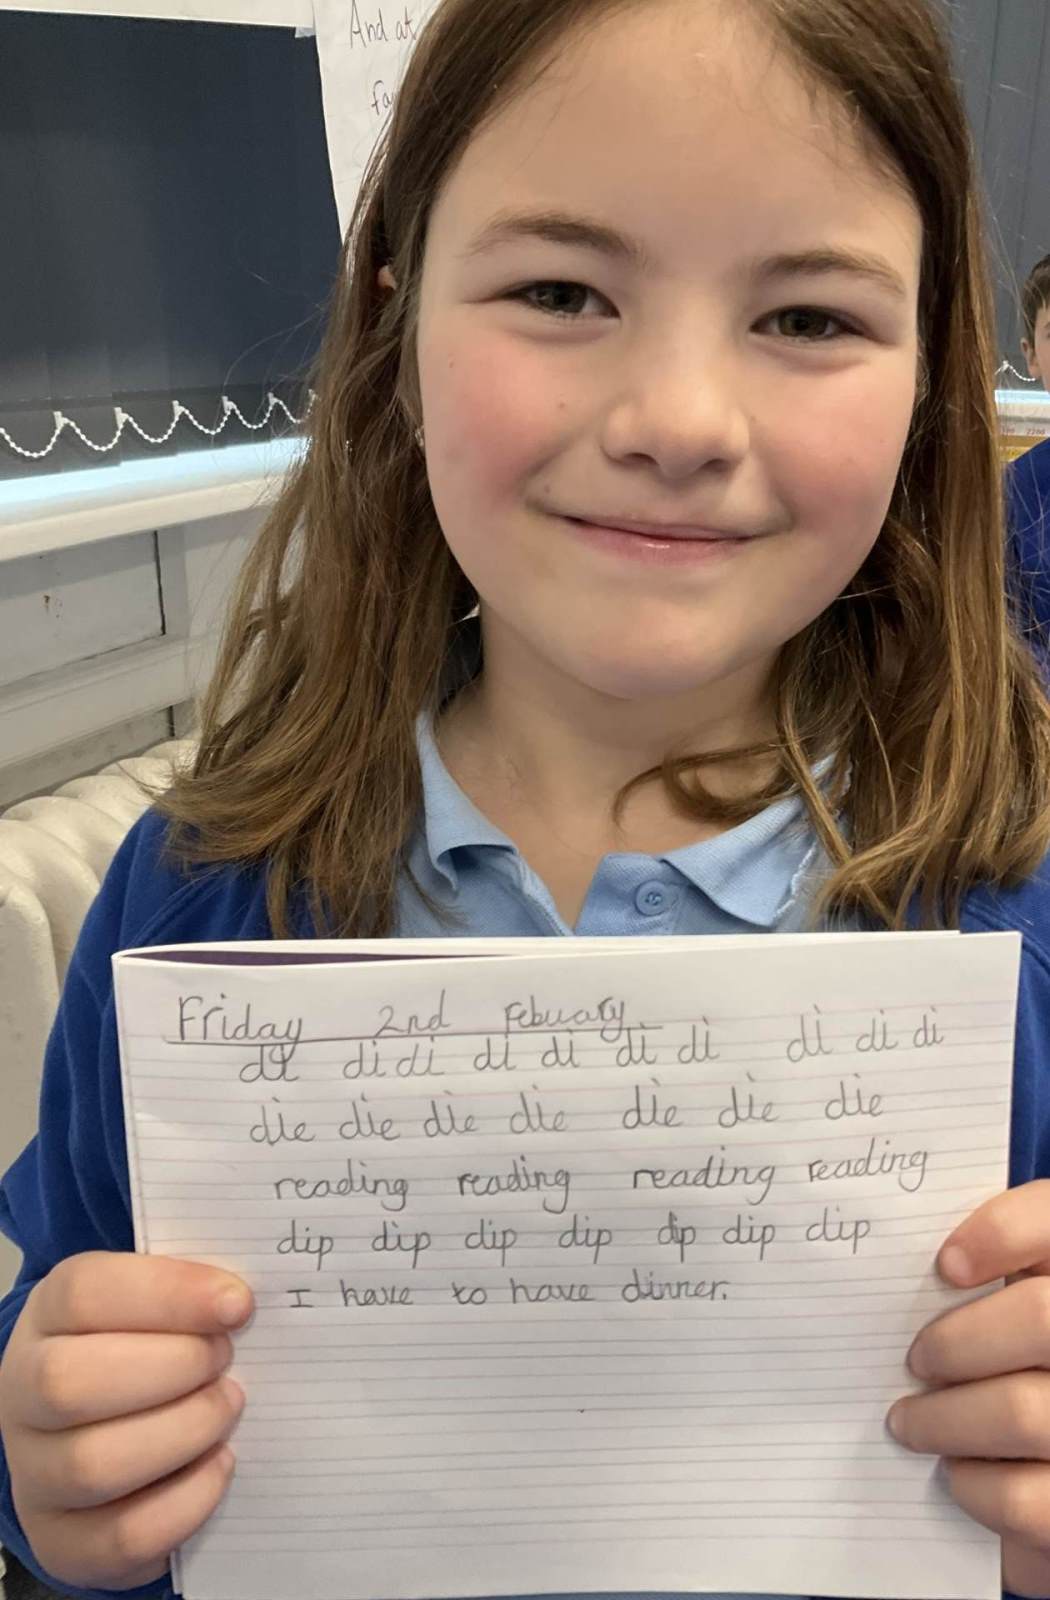 And at
Fa
Friday 2nd Febuary
di di di di di di di di di di
die die die die die die die
reading reading reading reading
dip dip dip dip dip dip dip
I have to have dinner.
2200